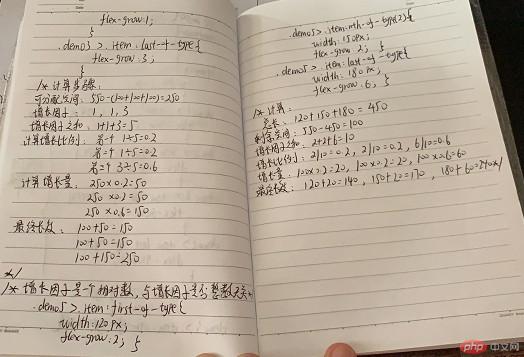 flex-grow:1;
}
.demo3 > .item:last-of-type{
flex-grow:3;
}
/* 计算步骤:
可分配空间: 550-(100+100+100)=250
增长因子: 1, 1, 3
增长因子之和: 1+1+3=5
计算增长比例: 第一个 1÷5=0.2
第二个 1÷5=0.2
第三个 3÷5=0.6
计算增长量: 250×0.2=50
250×0.2=50
250×0.6=150
最终长效: 100+50=150
100+50=150
100+150=250
*/
/* 增长因子是一个相对数, 与增长因子是否整数无关*/
.demo5 > .item:first-of-type{
width:120px;
flex-grow:2; }
.demo5 > .item:nth-of-type(2){
width:150px;
flex-grow:2; }
.demo5 > .item:last-of-type{
width:180px;
flex-grow:6; }
/* 计算:
总长: 120+150+180=450
剩余空间: 550-450=100
增长因子之和: 2+2+6=10
增长比例: 2/10=0.2, 2/10=0.2, 6/10=0.6
增长量: 100×0.2=20, 100×0.2=20, 100×0.6=60
最终长效: 120+20=140, 150+20=170, 180+60=240*/
php中文网